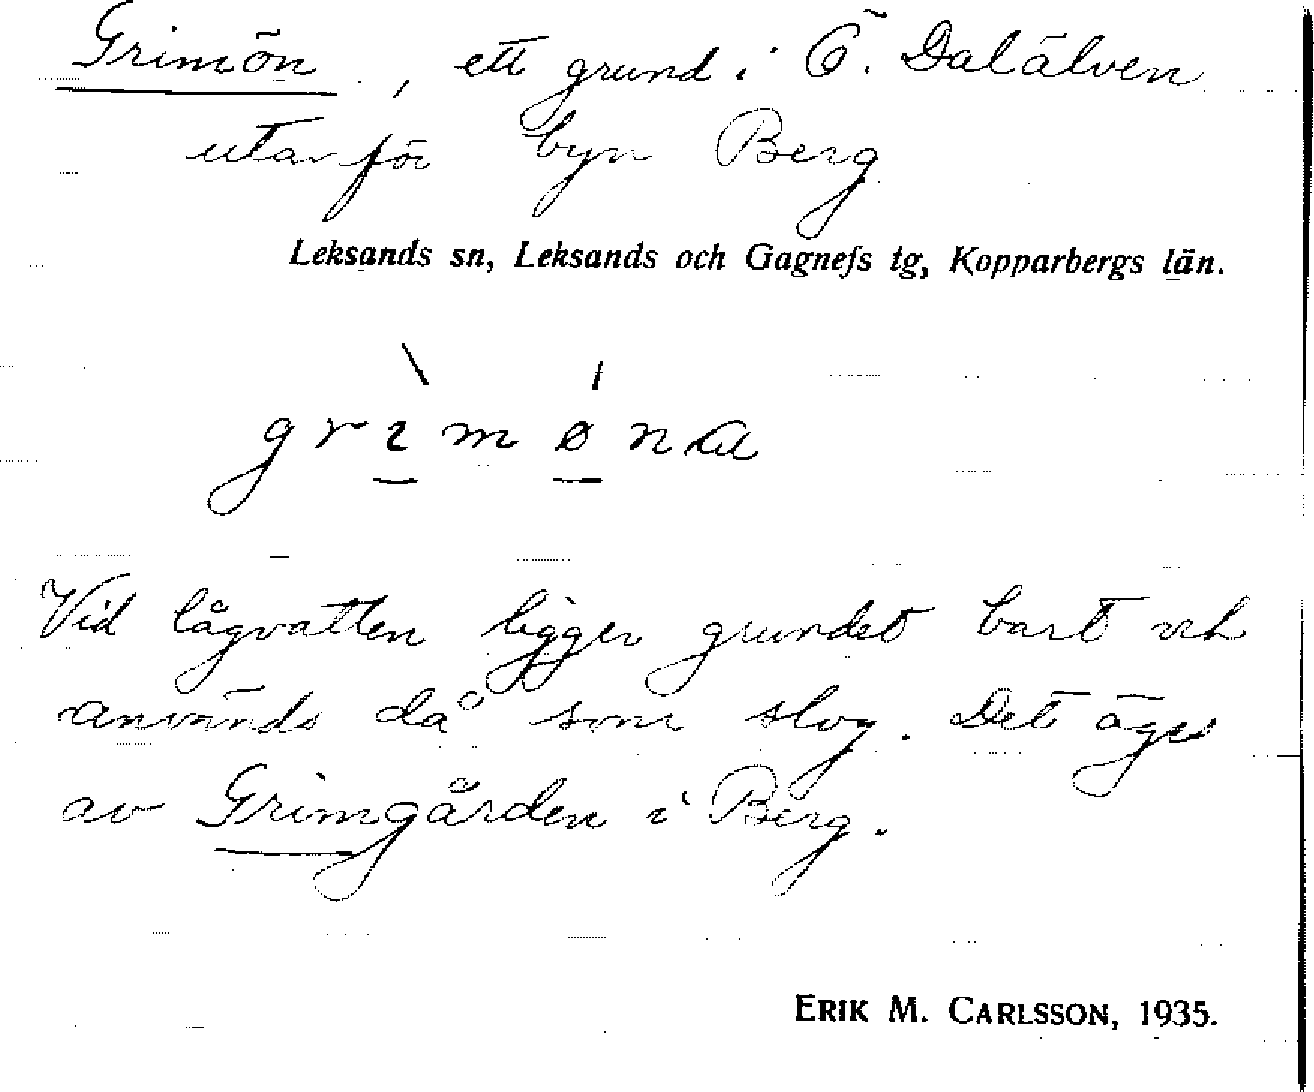 Grimön, ett grund i Ö. Dalälven
utanför byn Berg
Leksands sn, Leksands och Gagnefs tg, Kopparbergs län.
grimøna
Vid lågvatten ligger grundet bart och
används då som slog. Det äges
av Grimgården i Berg.
ERIK M. CARLSSON, 1935.